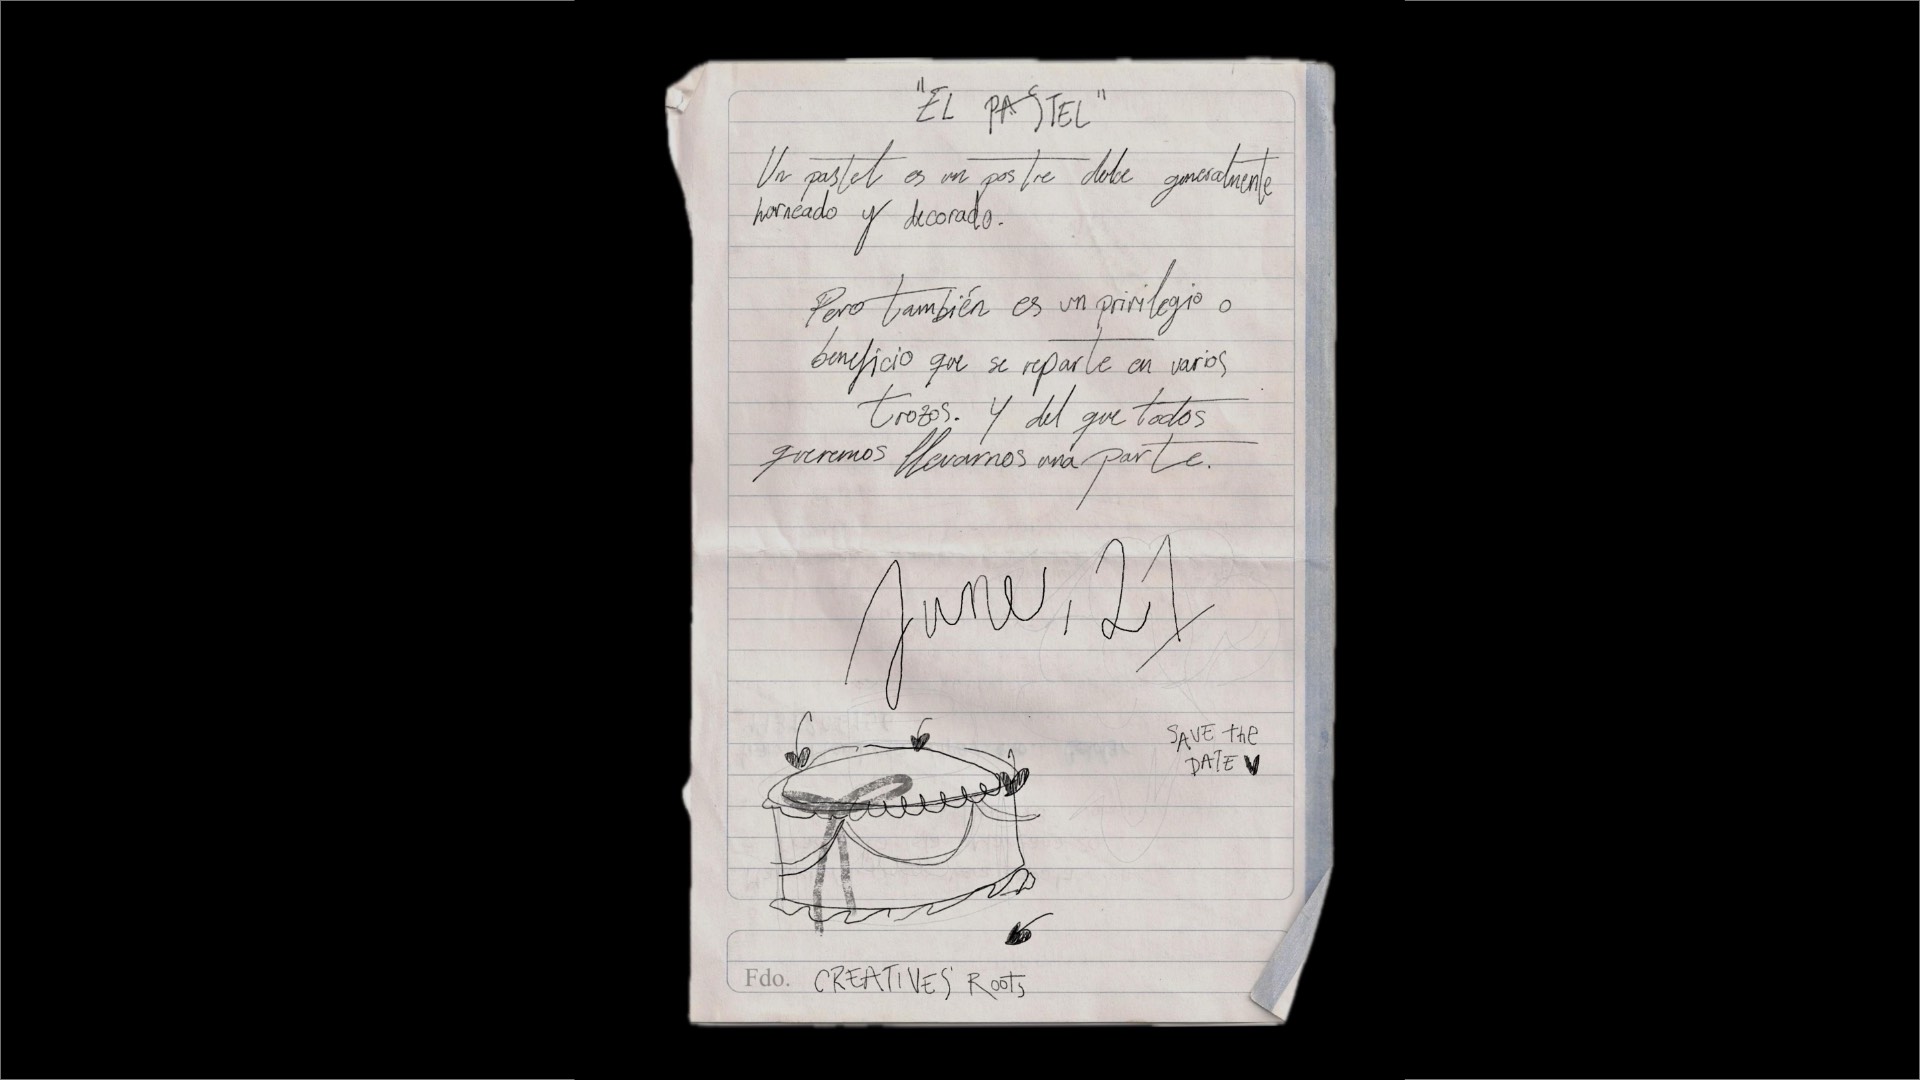 "EL PASTEL"
Un pastel es un postre dulce generalmente
horneado y decorado.
Pero también es un privilegio o
beneficio que se reparte en varios
trozos. Y del que todos
queremos llevarnos una parte.
June, 21
SAVE the
DATE
Fdo. CREATIVES' Roots